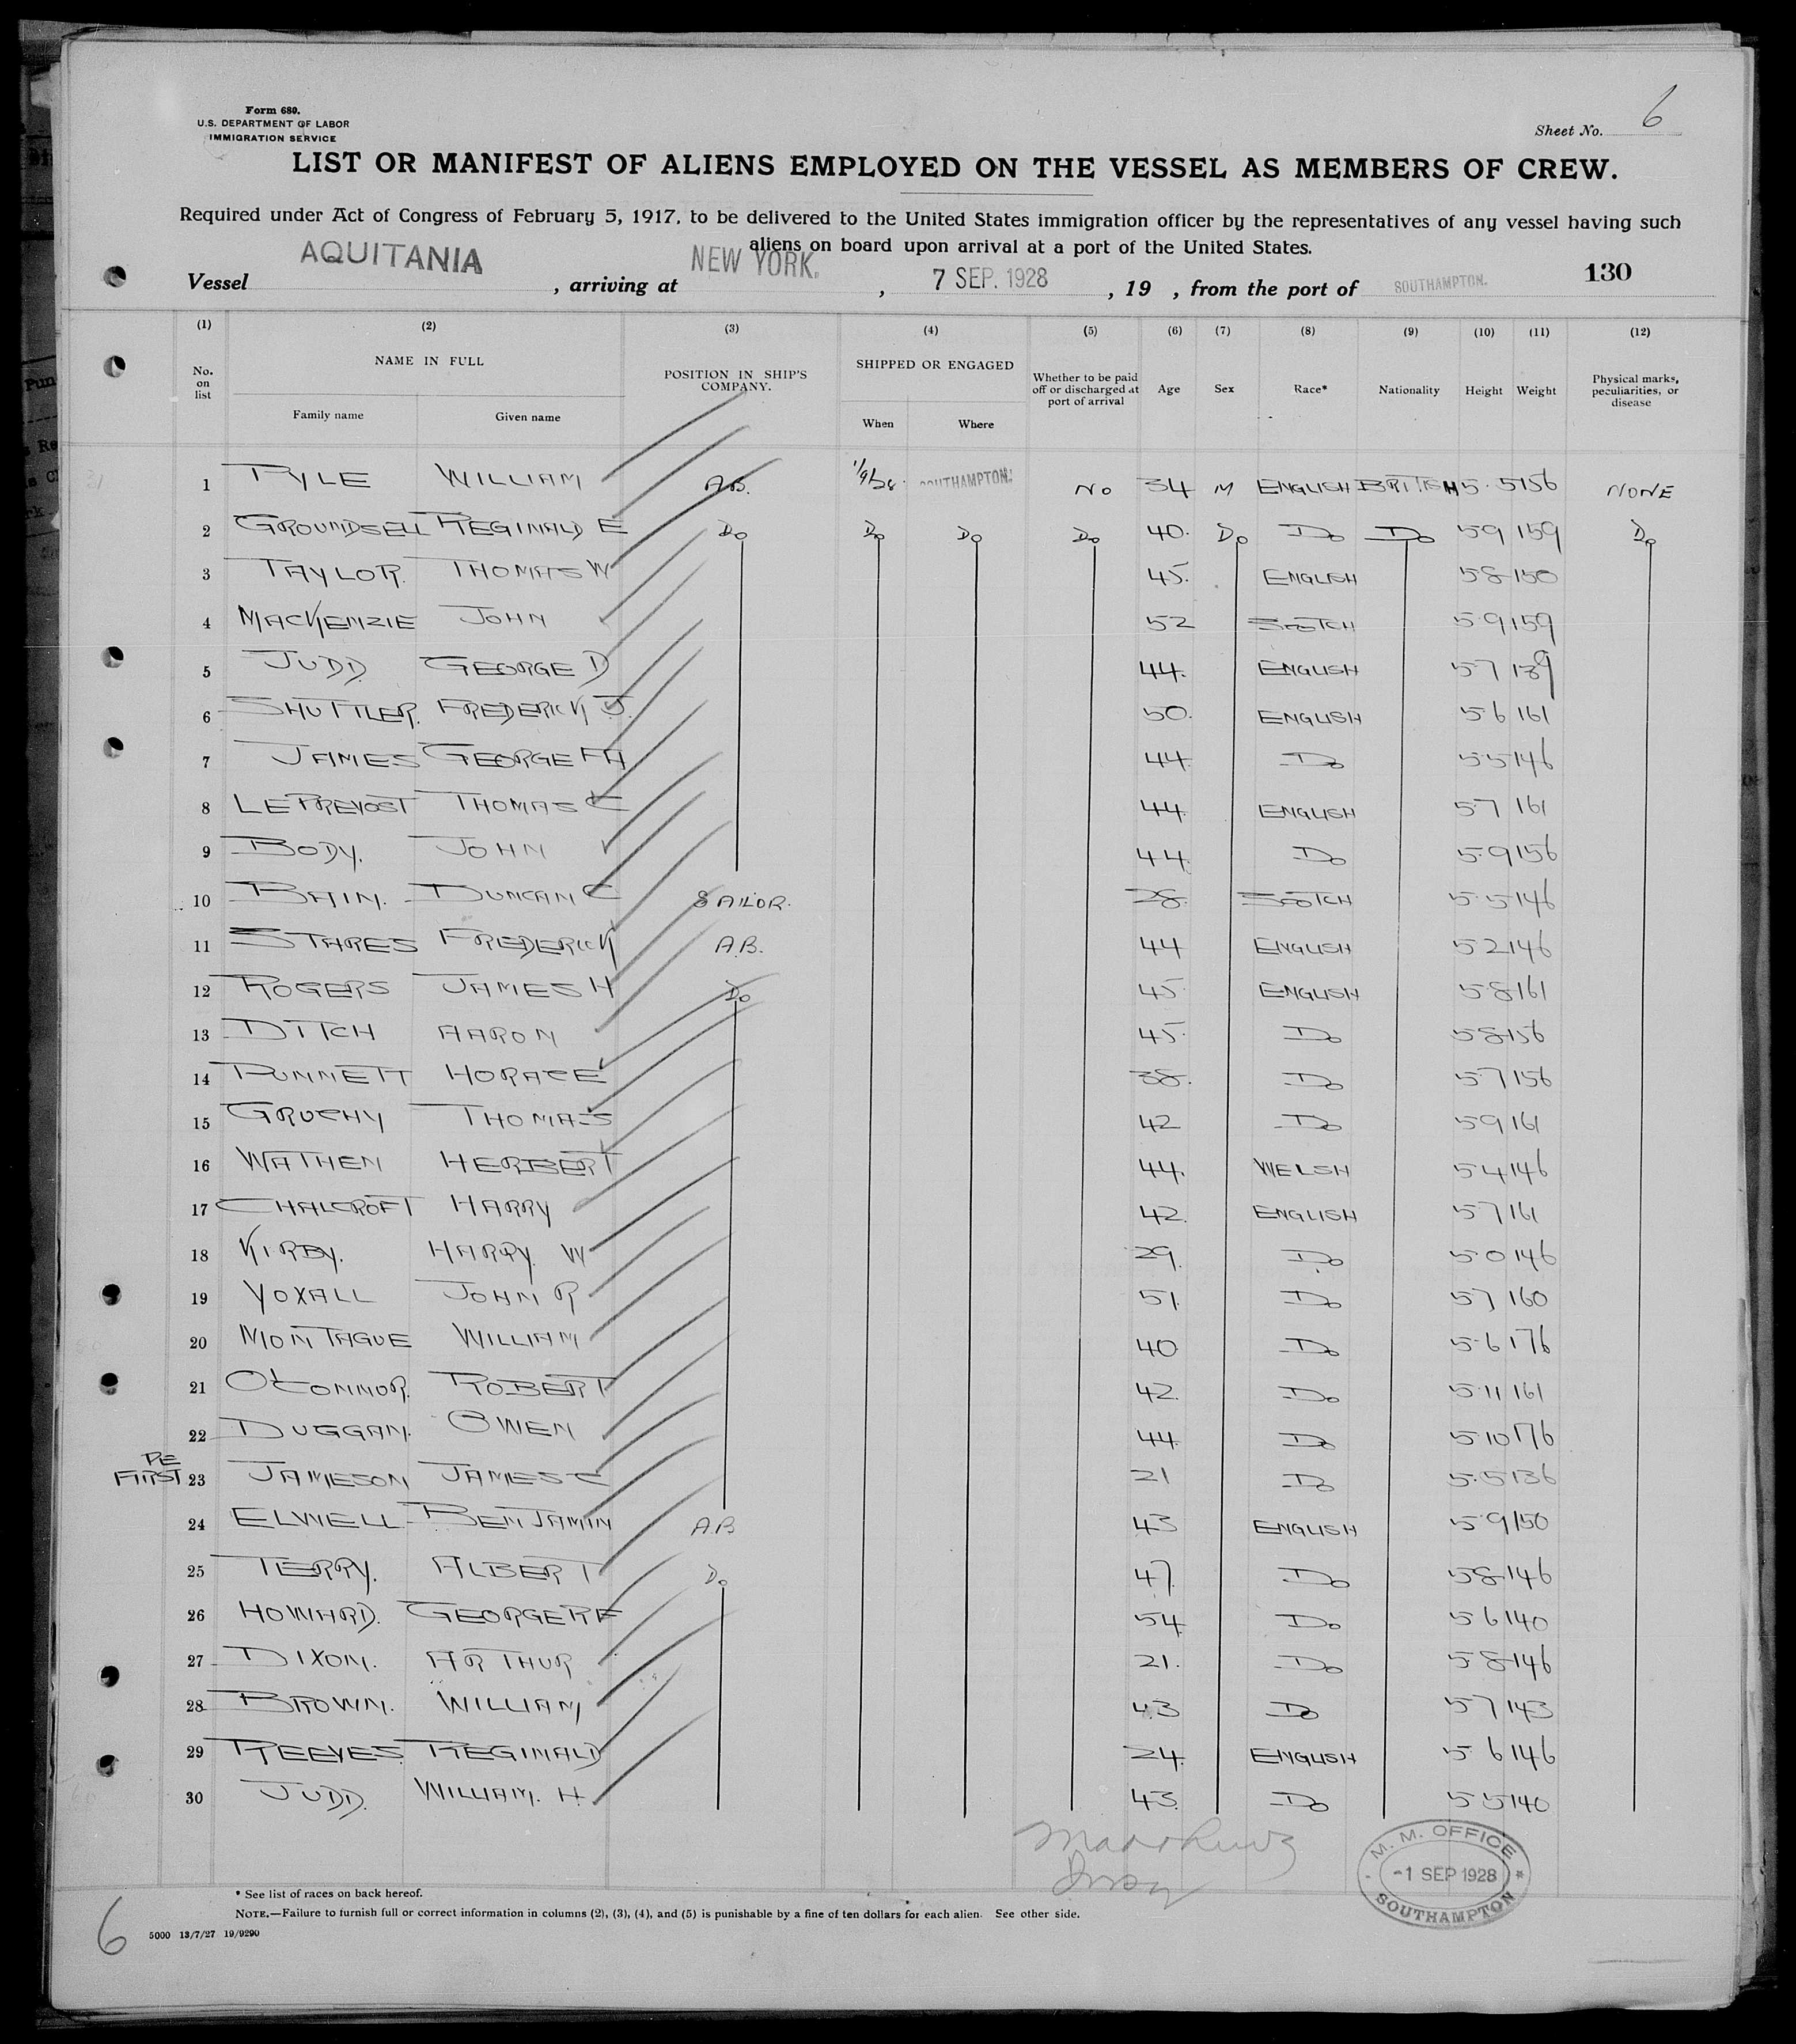 Form 680.
U.S. DEPARTMENT OF LABOR
IMMIGRATION SERVICE
Sheet No. 6
LIST OR MANIFEST OF ALIENS EMPLOYED ON THE VESSEL AS MEMBERS OF CREW.
Required under Act of Congress of February 5, 1917, to be delivered to the United States immigration officer by the representatives of any vessel having such
aliens on board upon arrival at a port of the United States.
Vessel AQUITANIA, arriving at NEW YORK, 7 SEP. 1928, 19 , from the port of SOUTHAMPTON. 130
(1) (2) (3) (4) (5) (6) (7) (8) (9) (10) (11) (12)
No. on list NAME IN FULL POSITION IN SHIP'S COMPANY. SHIPPED OR ENGAGED Whether to be paid off or discharged at port of arrival Age Sex Race* Nationality Height Weight Physical marks, peculiarities, or disease
Family name Given name When Where
1 PYLE WILLIAM A.B. 1/9/28 SOUTHAMPTON. No 34 M ENGLISH BRITISH 5.5 156 NONE
2 GROUNDSELL REGINALD E Do Do Do Do 40. Do Do Do 5 9 159 Do
3 TAYLOR. THOMAS W 45. ENGLISH 5 8 150
4 MACKENZIE JOHN 52 SCOTCH 5 9 159
5 JUDD. GEORGE D 44. ENGLISH 5 7 139
6 SHUTTLER. FREDERICK J. 50. ENGLISH 5.6 161
7 JAMES GEORGE FH 44. Do 5.5 146
8 LE PREVOST THOMAS C 44. ENGLISH 5 7 161
9 BODY. JOHN 44. Do 5.9 156
10 BAIN. DUNCAN C SAILOR. 28. SCOTCH 5.5 146
11 STARES FREDERICK A.B. 44 ENGLISH 5 2 146
12 ROGERS JAMES H Do 45 ENGLISH 5.8 161
13 DITCH AARON 45. Do 5 8 156
14 PUNNETT HORACE 38. Do 5.7 156
15 GRUCHY THOMAS 42 Do 5 9 161
16 WATHEN HERBERT 44. WELSH 5.4 146
17 CHALCROFT HARRY 42. ENGLISH 5 7 161
18 KIRBY. HARRY. W 29. Do 5 0 146
19 YOXALL JOHN R 51. Do 5 7 160
20 MONTAGUE WILLIAM 40 Do 5.6 176
21 O'CONNOR. ROBERT 42. Do 5.11 161
22 DUGGAN. OWEN 44. Do 5.10 176
PE
FIRST 23 JAMIESON JAMES C 21 Do 5.5 136
24 ELWELL BENJAMIN A.B 43 ENGLISH 5.9 150
25 TERRY. ALBERT Do 47. Do 5 8 146
26 HOWARD. GEORGE R F 54 Do 5 6 140
27 DIXON. ARTHUR 21. Do 5.8 146
28 BROWN. WILLIAM 43 Do 5 7 143
29 REEVES. REGINALD 24. ENGLISH 5.6 146
30 JUDD. WILLIAM. H. 43. Do 5 5 140
M. M. OFFICE
-1 SEP 1928 *
SOUTHAMPTON
* See list of races on back hereof.
NOTE.—Failure to furnish full or correct information in columns (2), (3), (4), and (5) is punishable by a fine of ten dollars for each alien. See other side.
6 5000 13/7/27 19/9290